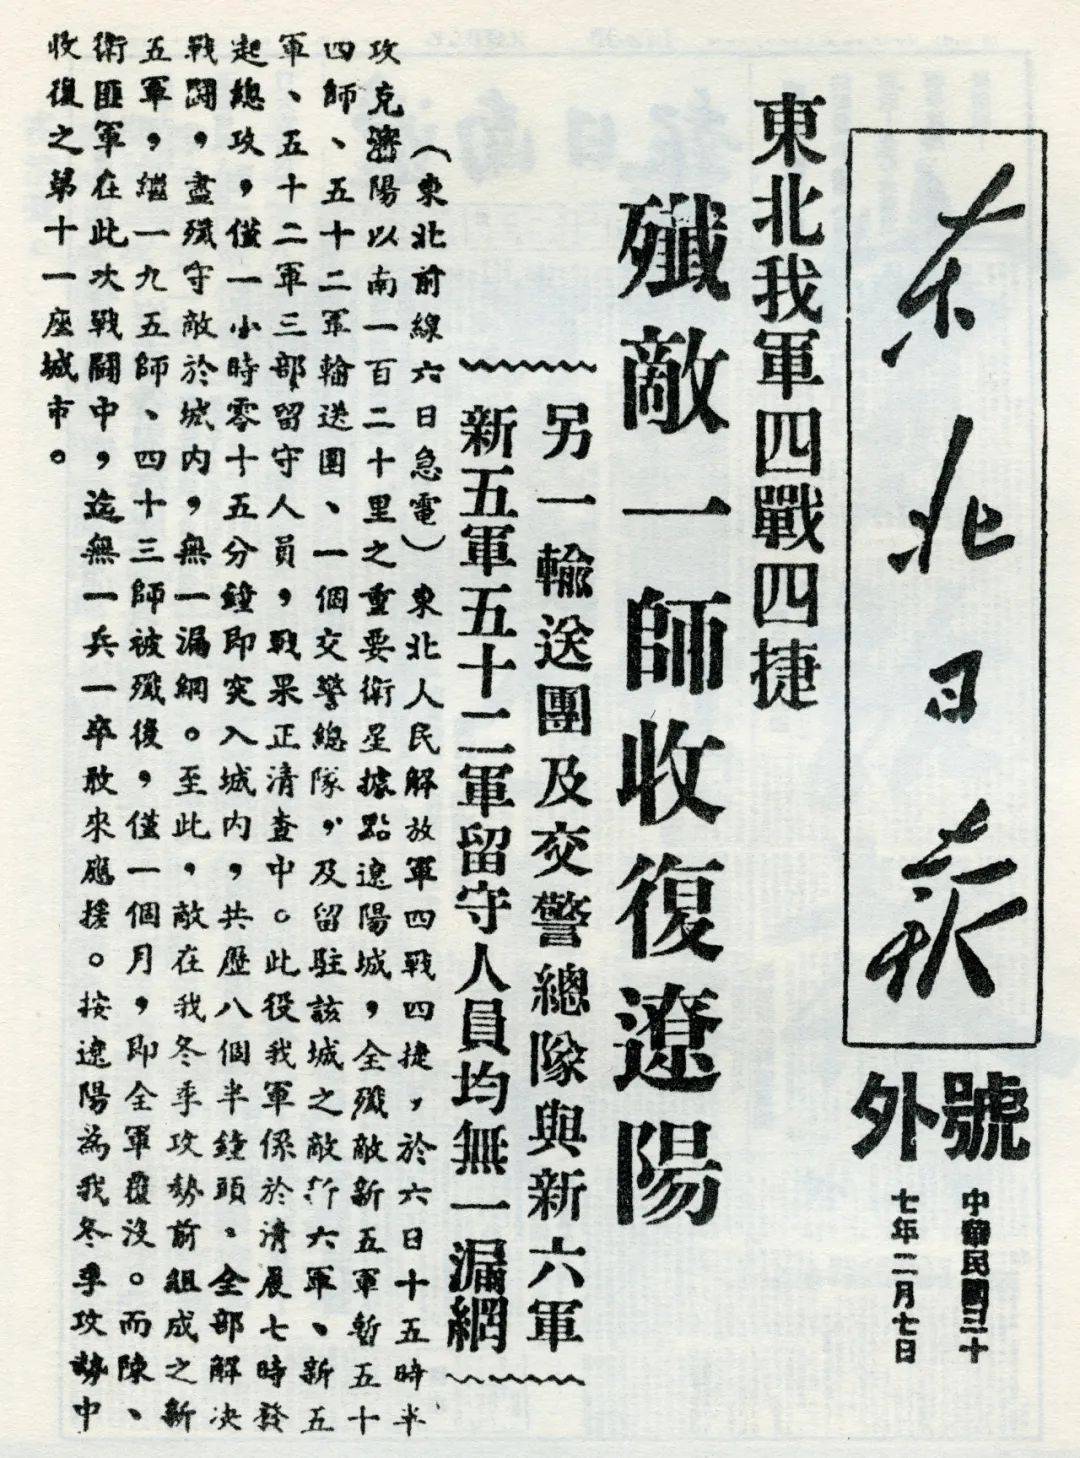 东北日报
號外
中華民國三十
七年二月七日
東北我軍四戰四捷
殲敵一師收復遼陽
另一輸送團及交警總隊與新六軍
新五軍五十二軍留守人員均無一漏網
（東北前線六日急電）東北人民解放軍四戰四捷，於六日十五時半
攻克瀋陽以南一百二十里之重要衛星據點遼陽城，全殲敵新五軍暫五十
四師、五十二軍輸送團、一個交警總隊，及留駐該城之敵新六軍、新五
軍、五十二軍三部留守人員，戰果正清查中。此役我軍係於清晨七時發
起總攻，僅一小時零十五分鐘即突入城內，共歷八個半鐘頭。全部解決
戰鬪，盡殲守敵於城內，無一漏網。至此，敵在我冬季攻勢前組成之新
五軍，繼一九五師、四十三師被殲後，僅一個月，即全軍覆沒。而陳、
衛匪軍在此次戰鬪中，迄無一兵一卒敢來應援。按遼陽為我冬季攻勢中
收復之第十一座城市。